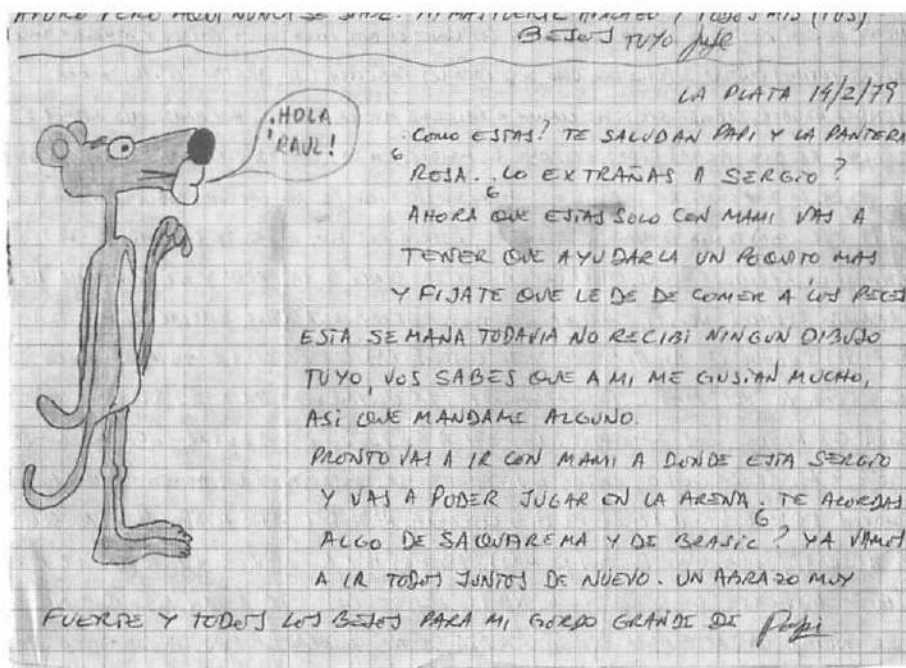 PERO AQUI NUNCA SE SABE. MI MAS FUERTE ABRAZO Y TODOS MIS (TUS)
BESOS TUYO
LA PLATA 14/2/79
¡HOLA
RAUL!
¿COMO ESTAS? TE SALUDAN PAPI Y LA PANTERA
ROSA. ¿LO EXTRAÑAS A SERGIO?
AHORA QUE ESTAS SOLO CON MAMI VAS A
TENER QUE AYUDARLA UN POQUITO MAS
Y FIJATE QUE LE DE DE COMER A LOS PECES
ESTA SEMANA TODAVIA NO RECIBI NINGUN DIBUJO
TUYO, VOS SABES QUE A MI ME GUSTAN MUCHO,
ASI QUE MANDAME ALGUNO.
PRONTO VAS A IR CON MAMI A DONDE ESTA SERGIO
Y VAS A PODER JUGAR EN LA ARENA. ¿TE ACORDAS
ALGO DE SAQUAREMA Y DE BRASIL? YA VAMOS
A IR TODOS JUNTOS DE NUEVO. UN ABRAZO MUY
FUERTE Y TODOS LOS BESOS PARA MI GORDO GRANDE DE Papi